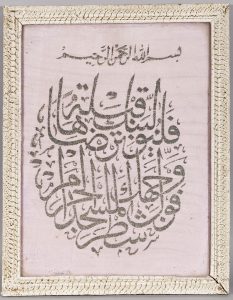 بسم الله الرحمن الرحيم
فلنولينك قبلة ترضيها
فول وجهك شطر المسجد الحرام